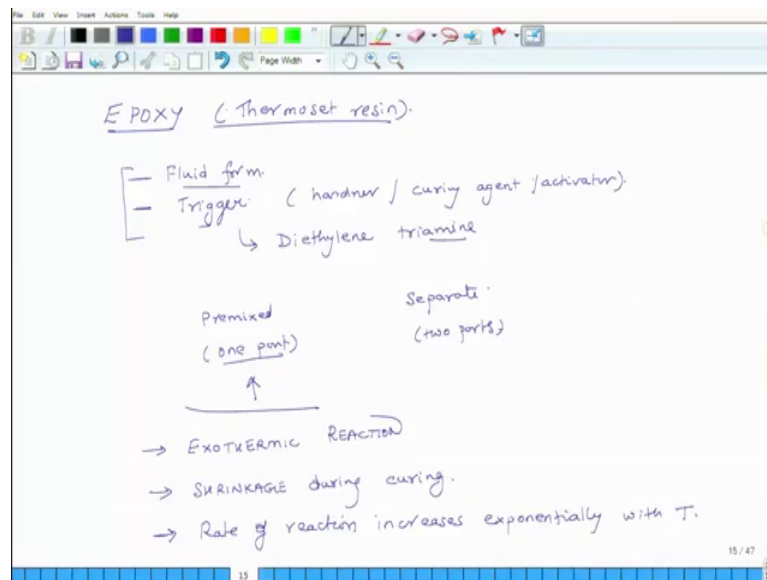 File Edit View Insert Actions Tools Help
B I
Page Width
EPOXY (Thermoset resin).
— Fluid form.
— Trigger. (hardner / curing agent /activator).
↳ Diethylene triamine
Premixed Separate.
(one part) (two parts)
→ EXOTHERMIC REACTION
→ SHRINKAGE during curing.
→ Rate of reaction increases exponentially with T.
15 / 47
15